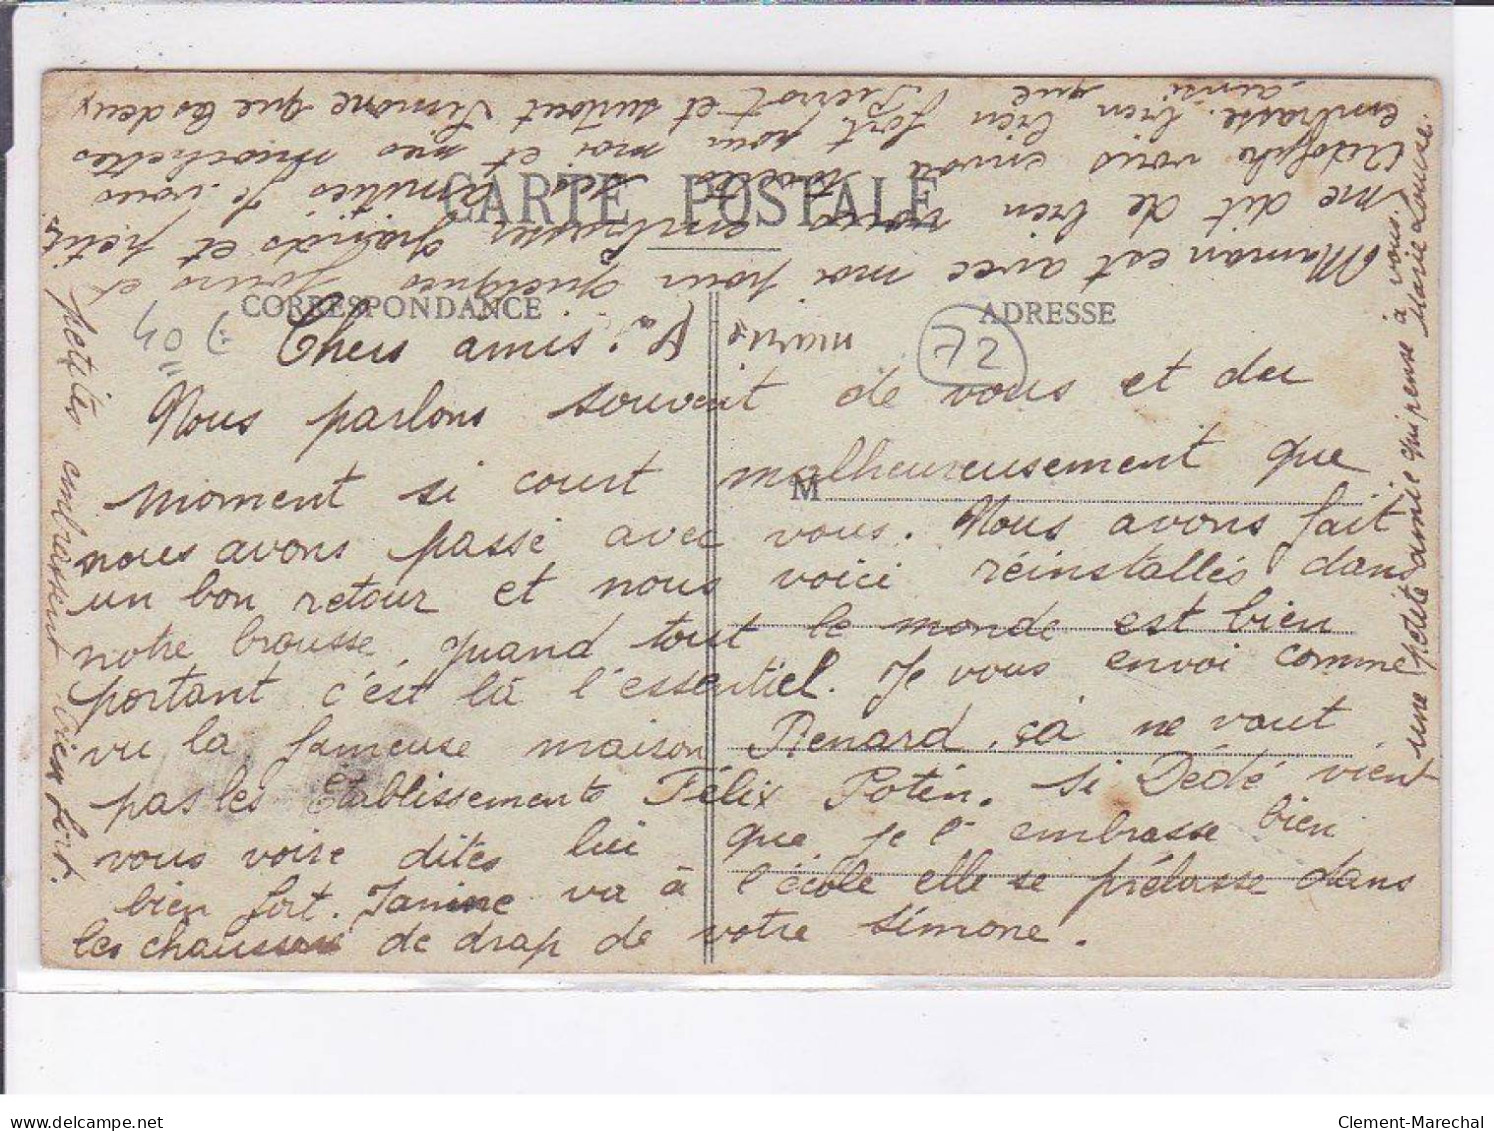 CARTE POSTALE
CORRESPONDANCE
ADRESSE
72
M
Chers amis.
Nous parlons souvent de vous et du
moment si court malheureusement que
nous avons passé avec vous. Nous avons fait
un bon retour et nous voici réinstallés dans
notre brousse, quand tout le monde est bien
portant c'est là l'essentiel. Je vous envoi comme
vu la fameuse maison Renard, çà ne vaut
pas les Etablissements Félix Potin. Si Dédé vient
vous voire dites lui que je l'embrasse bien
bien fort. Janine va à l'école elle se prélasse dans
les chaussons de drap de votre Simone.
Maman est avec moi pour quelques jours et
me dit de bien vous embrasser grands et petits
Adolphe vous envoi toutes ses amitiés Je vous
embrasse bien bien fort pour moi et mes mochettes
ainsi que Pierrot et surtout Simone que les deux
petites embrassent bien fort.
une petite amie qui pense à vous.
Marie Louise.
Clement-Marechal